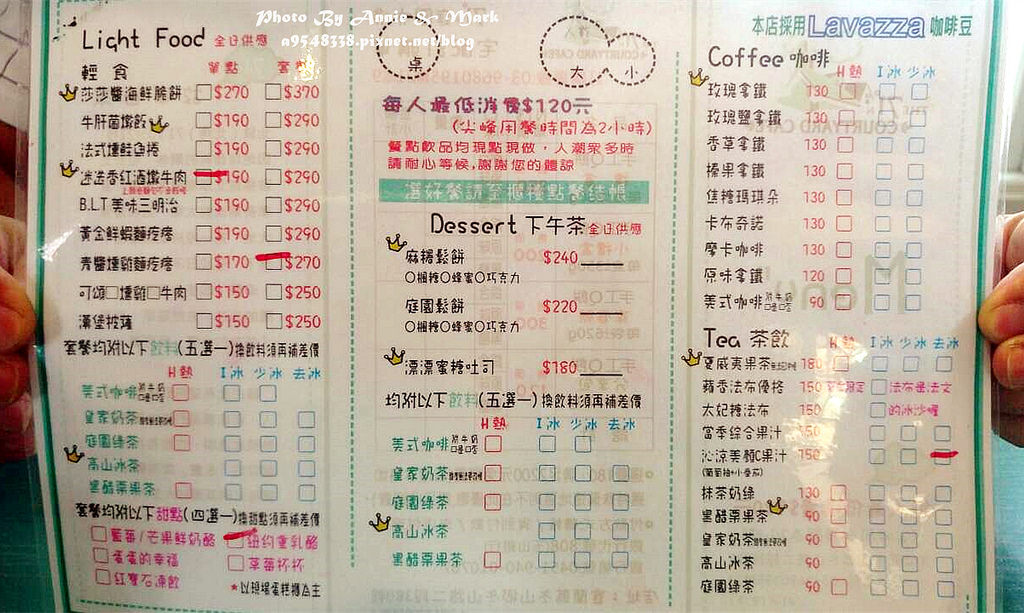 Photo By Annie & Mark
a9548338.pixnet.net/blog
Light Food 全日供應
輕食 單點 套餐
莎莎醬海鮮脆餅 $270 $370
牛肝菌燉飯 $190 $290
法式燻鮭魚捲 $190 $290
迷迭香紅酒燉牛肉 $190 $290
B.L.T美味三明治 $190 $290
黃金鮮蝦麵疙瘩 $190 $290
青醬燻雞麵疙瘩 $170 $270
可頌□燻雞□牛肉 $150 $250
漢堡披薩 $150 $250
套餐均附以下飲料(五選一)換飲料須再補差價
H熱 I冰 少冰 去冰
美式咖啡
皇家奶茶
庭園綠茶
高山冰茶
黑醋栗果茶
套餐均附以下甜點(四選一)換甜點須再補差價
藍莓/芒果鮮奶酪 紐約重乳酪
蛋蛋的幸福 草莓杯杯
紅寶石凍飲
*以現場蛋糕櫃為主
桌
大 小
每人最低消費$120元
(尖峰用餐時間為2小時)
餐點飲品均現點現做，人潮眾多時
請耐心等候,謝謝您的體諒
選好餐請至櫃檯點餐結帳
Dessert 下午茶 全日供應
麻糬鬆餅 $240
○楓糖○蜂蜜○巧克力
庭園鬆餅 $220
○楓糖○蜂蜜○巧克力
漂漂蜜糖吐司 $180
均附以下飲料(五選一)換飲料須再補差價
H熱 I冰 少冰 去冰
美式咖啡
皇家奶茶
庭園綠茶
高山冰茶
黑醋栗果茶
本店採用Lavazza咖啡豆
Coffee 咖啡 H熱 I冰 少冰
玫瑰拿鐵 130
玫瑰鹽拿鐵 130
香草拿鐵 130
榛果拿鐵 130
焦糖瑪琪朵 130
卡布奇諾 130
摩卡咖啡 130
原味拿鐵 120
美式咖啡 90
Tea 茶飲 H熱 I冰 少冰 去冰
夏威夷果茶 180
蘋香法布優格 150 法布是法文
太妃糖法布 150 的冰沙喔
富季綜合果汁 150
沁涼美顏C果汁 150
(葡萄柚+小番茄)
抹茶奶綠 130
黑醋栗果茶 90
皇家奶茶 90
高山冰茶 90
庭園綠茶 90